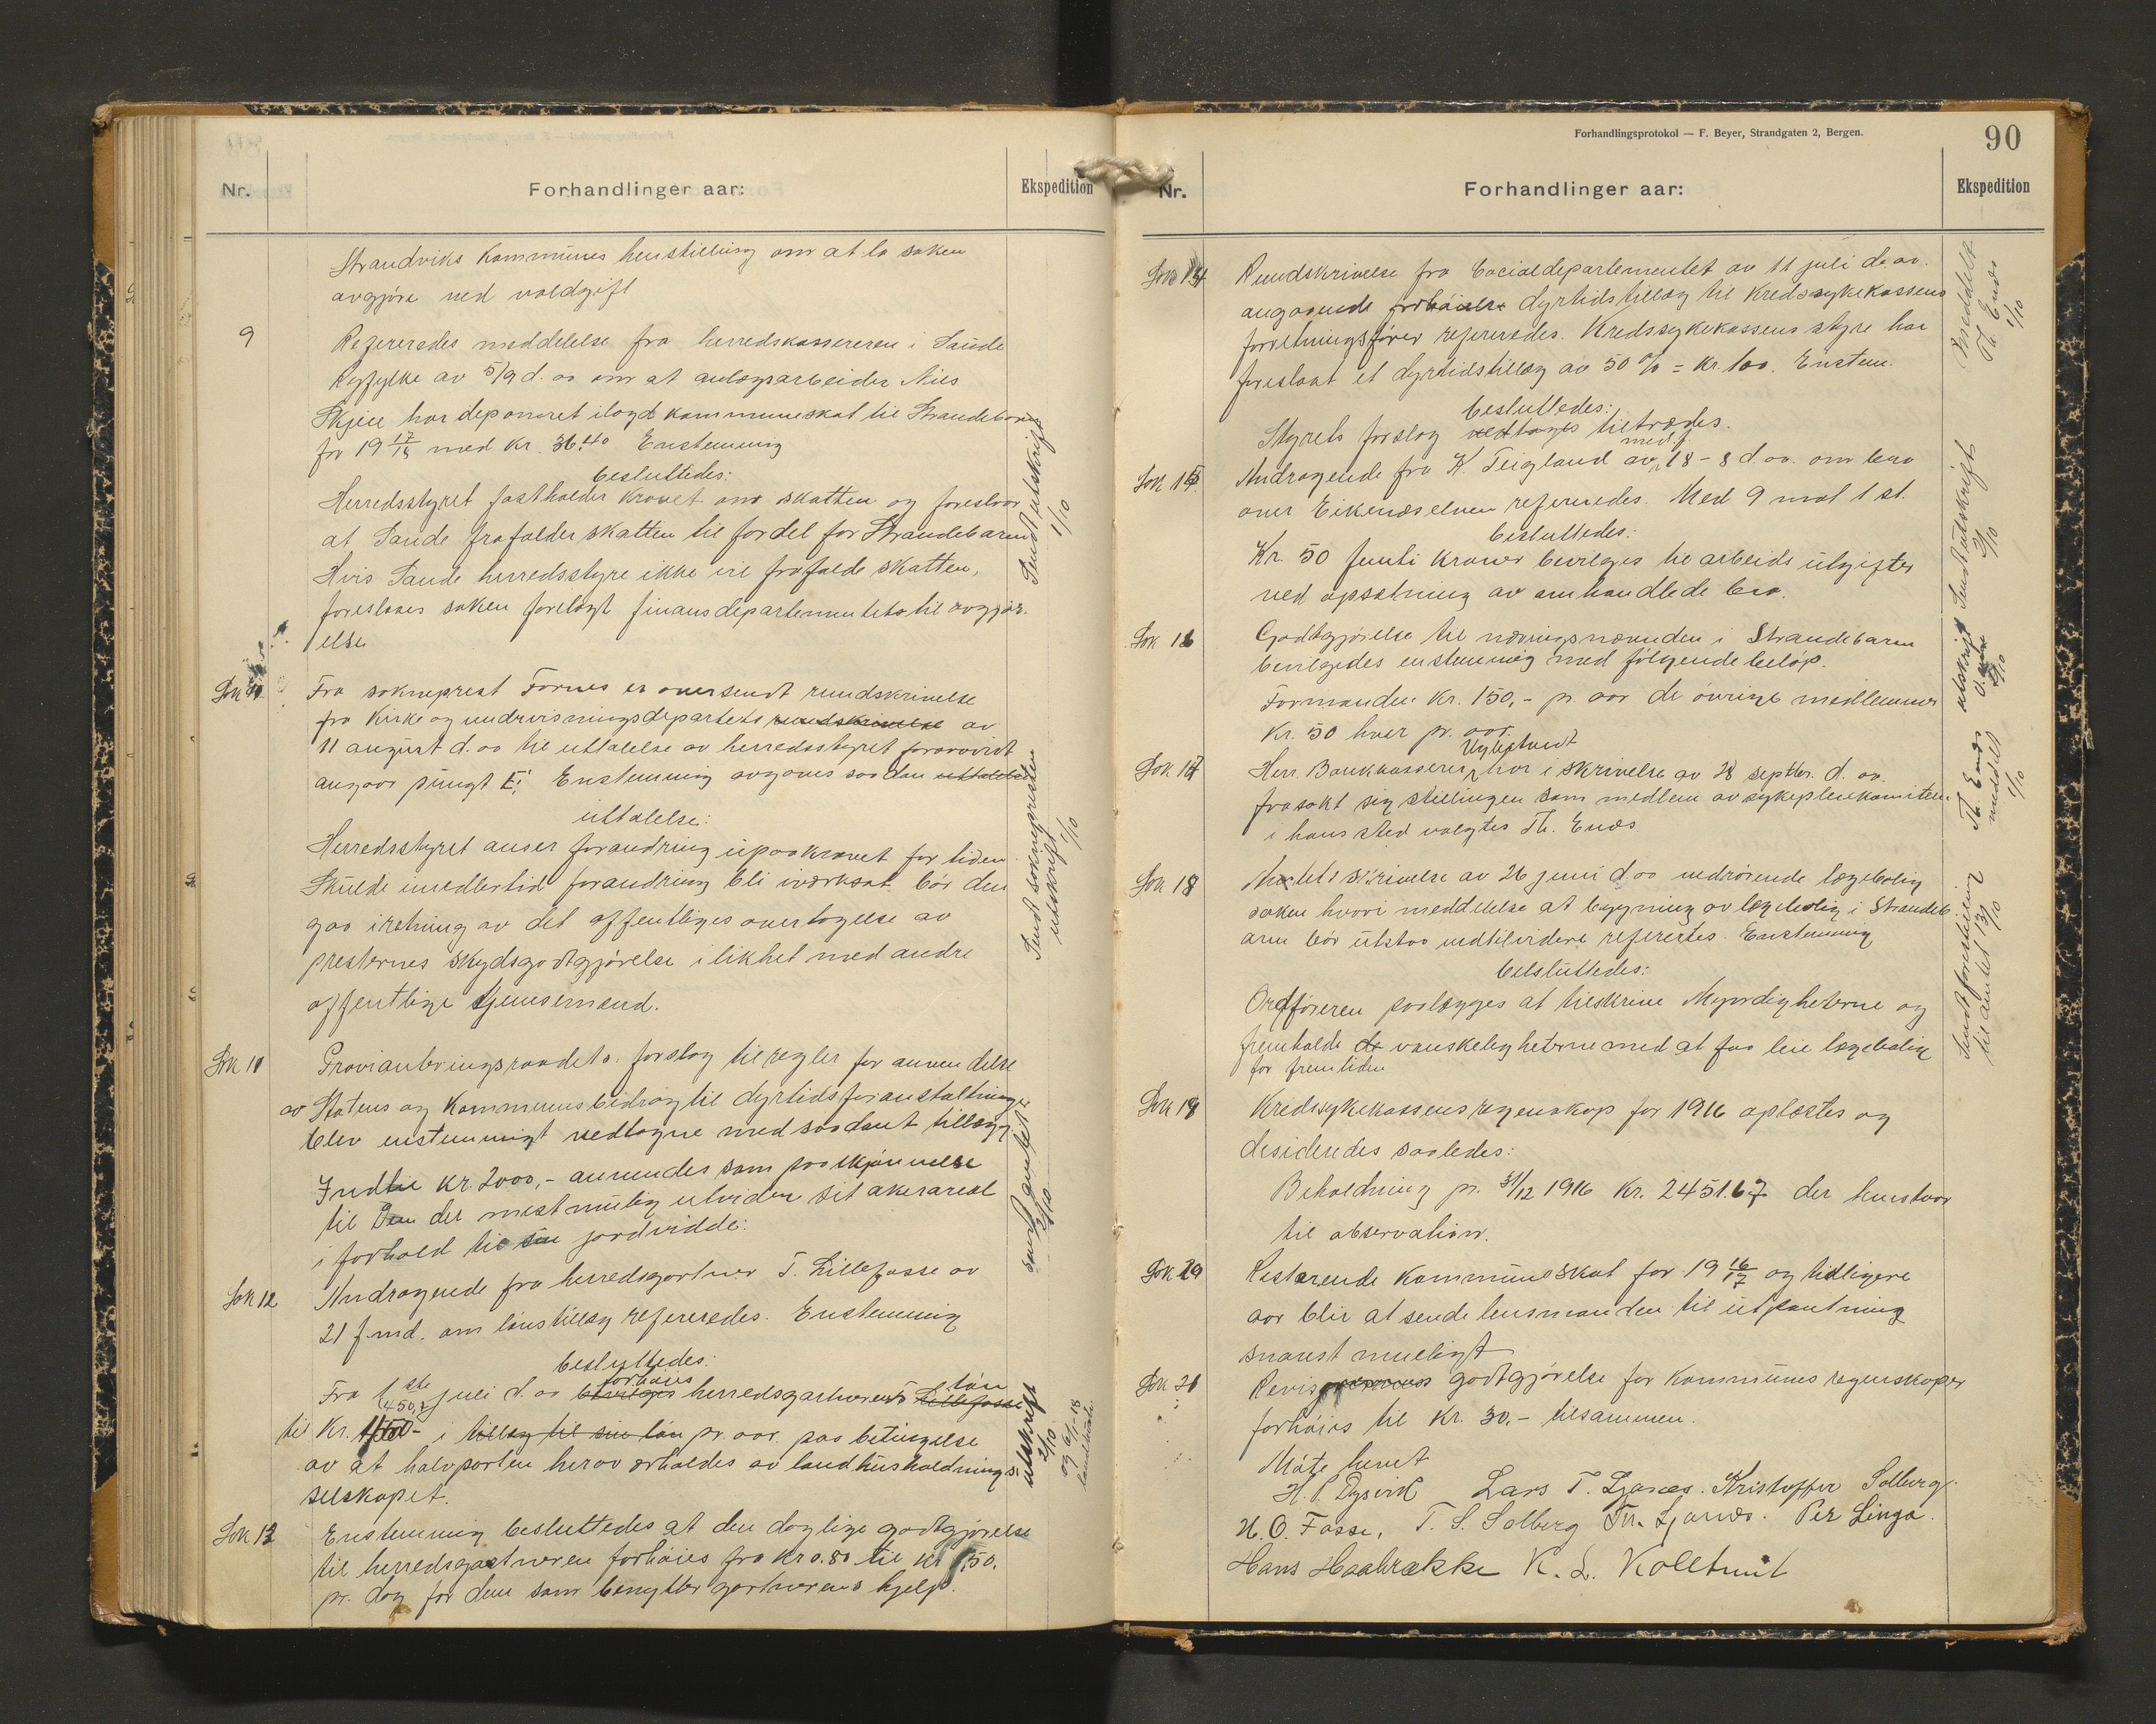 Nr.
Forhandlinger aar:
Ekspedition
Strandviks kommunes henstilling om at la saken
avgjøre ved voldgift
9
Refereredes meddelelse fra herredskassereren i Saude
Ryfylke av 5/9 d. aa om at anlægsarbeider Nils
Skjeie har deponeret ilagd kommuneskat til Strandebarm
for 19 17/18 med kr. 36.40 Enstemmig
besluttedes:
Herredsstyret fastholder kravet om skatten og foreslaar
at Saude frafalder skatten til fordel for Strandebarm
Hvis Saude herredsstyre ikke vil frafalde skatten,
foreslaaes saken forelagt finansdepartementets til avgjør-
else
Sak 10
Fra sogneprest Fornes er oversendt rundskrivelse
fra Kirke og undervisningsdepartets rundskrivelse av
11 august d. aa til uttalelse av herredsstyret forsaavidt
angaar pungt E. Enstemmig avgaves saadan uttalelse
uttalelse:
Herredsstyret anser forandring upaakrævet for tiden
Skulde imedlertid forandring bli iverksat bør den
gaa i retning av det offentliges overtagelse av
presternes skydsgodtgjørelse i likhet med andre
offentlige tjenesmænd.
Sak 11
Provianteringsraadets forslag til regler for anvendelse
av Statens og Kommunens bidrag til dyrtidsforanstaltninger
blev enstemmigt vedtagne med saadant tillæg:
Indtil kr. 2000,- anvendes som paaskjønnelse
til Den der mest mulig utvider sit akerareal
i forhold til sin jordvidde:
Sak 12
Andragende fra herredsgartner T. Lillefosse av
21 f. md. om lønstillæg refereredes. Enstemmig
besluttedes:
Fra 1ste juli d. aa bevilges forhøies herredsgartnerens Lillefosse løn
til Kr. 450,- i tillæg til sin løn pr. aar. paa betingelse
av at halvparten herav erholdes av landhusholdnings-
selskapet.
Sak 13
Enstemmig besluttedes at den daglige godtgjørelse
til herredsgartneren forhøies fra kr 0.80 til kr 1,50.
pr. dag for dem som benytter gartnerens hjelp.
Sendt utskrift
1/10
Sendt soknepresten
utskrift 1/10
2/10
utskrift
2/10
og 6/1-18
Forhandlingsprotokol — F. Beyer, Strandgaten 2, Bergen.
90
Nr.
Forhandlinger aar:
Ekspedition
Sak 14
Rundskrivelse fra Socialdepartementet av 11 juli d. aa.
angaaende forhøielse dyrtidstillæg til Kredssykekassens
forretningsfører refereredes. Kredssykekassens styre har
foreslaat et dyrtidstillæg av 50 % = kr. 100. Enstem.
besluttedes:
Styrets forslag vedtages tiltrædes.
Sak 15
Andragende fra K. Teigland med fl. av 18-8 d. aa. om bro
over Eikenæselven refereredes. Med 9 mot 1 st.
besluttedes:
Kr. 50 femti kroner bevilges til arbeids utgifter
ved opsætning av omhandlede bro.
Sak 16
Godtgjørelse til næringsnævnden i Strandebarm
bevilgedes enstemmig med følgende beløp.
Formanden Kr. 150,- pr. aar de øvrige medlemmer
Kr. 50 hver pr. aar.
Sak 17
Herr Bankkasserer Uglestvedt har i skrivelse av 28 septbr. d. aa.
frasakt sig stillingen som medlem av sykepleiekomiteen
i hans sted valgtes Th. Enæs
Sak 18
Amtets skrivelse av 26 juni d. aa vedrørende lægebolig
saken hvori meddelelse at bygning av lægebolig i Strandeb-
arm bør utstaa indtilvidere referertes. Enstemmig
beslsuttedes:
Ordføreren paalægges at tilskrive Myndigheterne og
fremholde de vanskeligheterne med at faa leie lægebolig
for fremtiden
Sak 19
Kredssykekassens regnskap for 1916 oplæstes og
desideredes saaledes:
Beholdning pr. 31/12 1916 Kr. 2451.67 der henstaar
til observation.
Sak 20
Resterende kommuneskat for 19 16/17 og tidligere
aar blir at sende lensmanden til utpantning
snarest mueligt
Sak 21
Revisorernes godtgjørelse for kommunes regnskaper
forhøies til Kr. 30.- tilsammen.
Møte hevet
H. P. Dysvik Lars T. Ljonæs. Kristoffer Solberg.
H. O. Fosse, T. S. Solberg Tr. Ljonæs. Per Linga.
Hans Haabrække K. L. Kolltveit
Meddelt
Th. Enæs
1/10
Sendt utskrift
2/10
utskrift
2/10
Th Enæs
meddelt
1/10
Sendt forestilling
til amtet 13/10